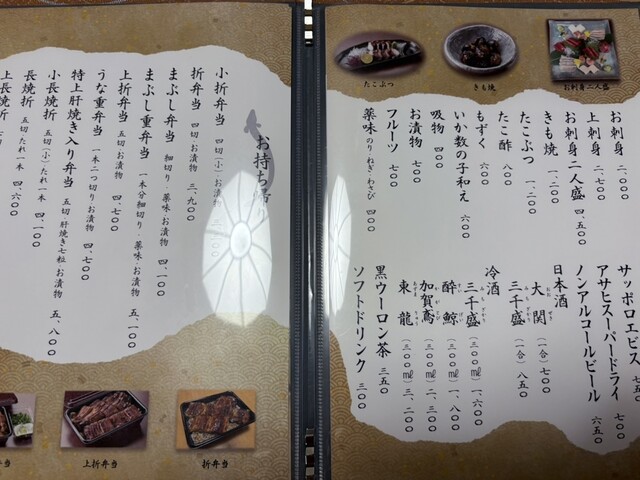 たこぶつ
きも焼
お刺身二人盛
お刺身 二、〇〇〇
上刺身 二、七〇〇
お刺身二人盛 四、五〇〇
きも焼 一、二〇〇
たこぶつ 一、二〇〇
たこ酢 八〇〇
もずく 六〇〇
いか数の子和え 六〇〇
吸物 四〇〇
お漬物 七〇〇
フルーツ 七〇〇
薬味 のり・ねぎ・わさび 四〇〇
サッポロエビス 七五〇
アサヒスーパードライ 七〇〇
ノンアルコールビール 六五〇
日本酒
大関 (一合) 七〇〇
三千盛 (一合) 八五〇
冷酒
三千盛 (三〇〇㎖) 一、六〇〇
酔鯨 (三〇〇㎖) 一、八〇〇
加賀鳶 (三〇〇㎖) 二、三〇〇
東龍 (三〇〇㎖) 三、二〇〇
黒ウーロン茶 三五〇
ソフトドリンク 三〇〇
お持ち帰り
小折弁当 四切(小)お漬物
折弁当 四切・お漬物 三、九〇〇
まぶし弁当 細切り・薬味・お漬物 四、一〇〇
まぶし重弁当 一本分細切り・薬味・お漬物 五、一〇〇
上折弁当 五切・お漬物 四、七〇〇
うな重弁当 一本二つ切り・お漬物 四、七〇〇
特上肝焼き入り弁当 五切・肝焼き七粒・お漬物 五、八〇〇
小長焼折 五切(小)たれ一本 四、一〇〇
長焼折 五切たれ一本 四、六〇〇
上長焼折
折弁当
上折弁当
弁当